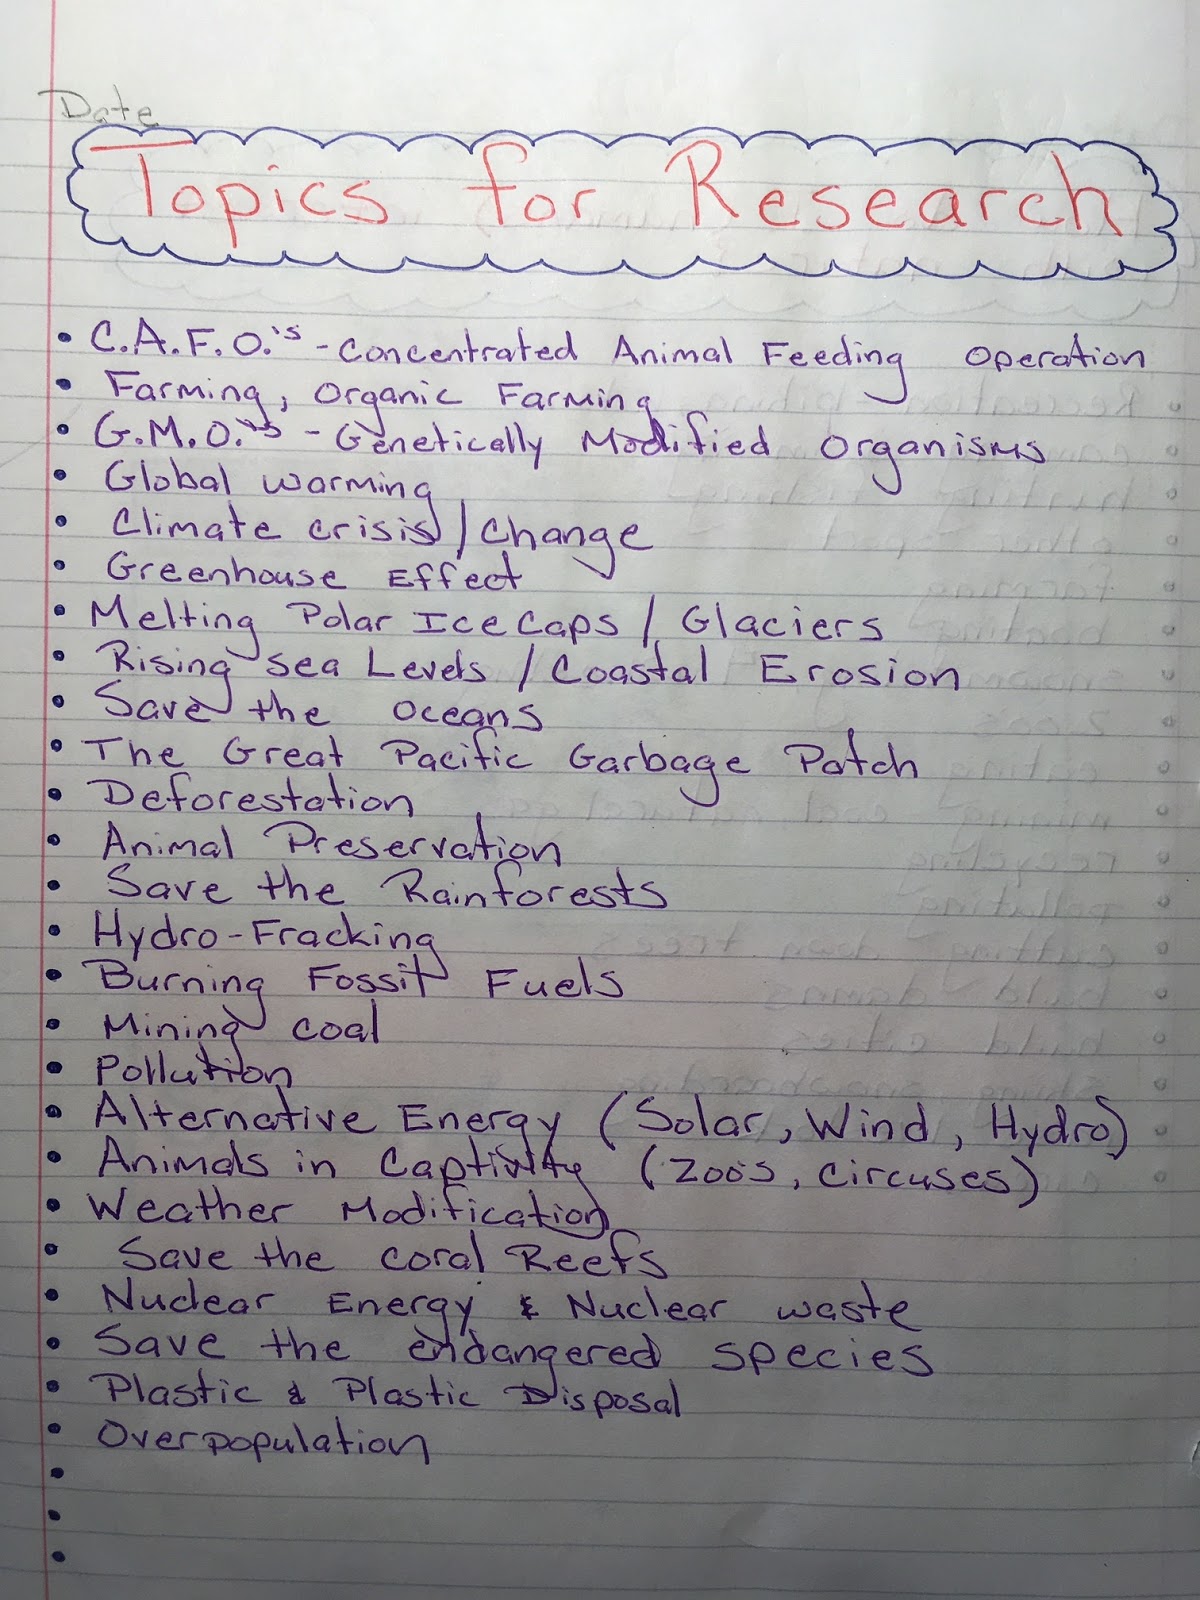 Date
Topics for Research
• C.A.F.O.'s - Concentrated Animal Feeding Operation
• Farming, Organic Farming
• G.M.O.'s - Genetically Modified Organisms
• Global warming
• Climate crisis / Change
• Greenhouse Effect
• Melting Polar Ice Caps / Glaciers
• Rising Sea Levels / Coastal Erosion
• Save the oceans
• The Great Pacific Garbage Patch
• Deforestation
• Animal Preservation
• Save the Rainforests
• Hydro-Fracking
• Burning Fossil Fuels
• Mining coal
• Pollution
• Alternative Energy (Solar, Wind, Hydro)
• Animals in Captivity (Zoos, Circuses)
• Weather Modification
• Save the coral Reefs
• Nuclear Energy & Nuclear waste
• Save the endangered species
• Plastic & Plastic Disposal
• Overpopulation
•
•
•